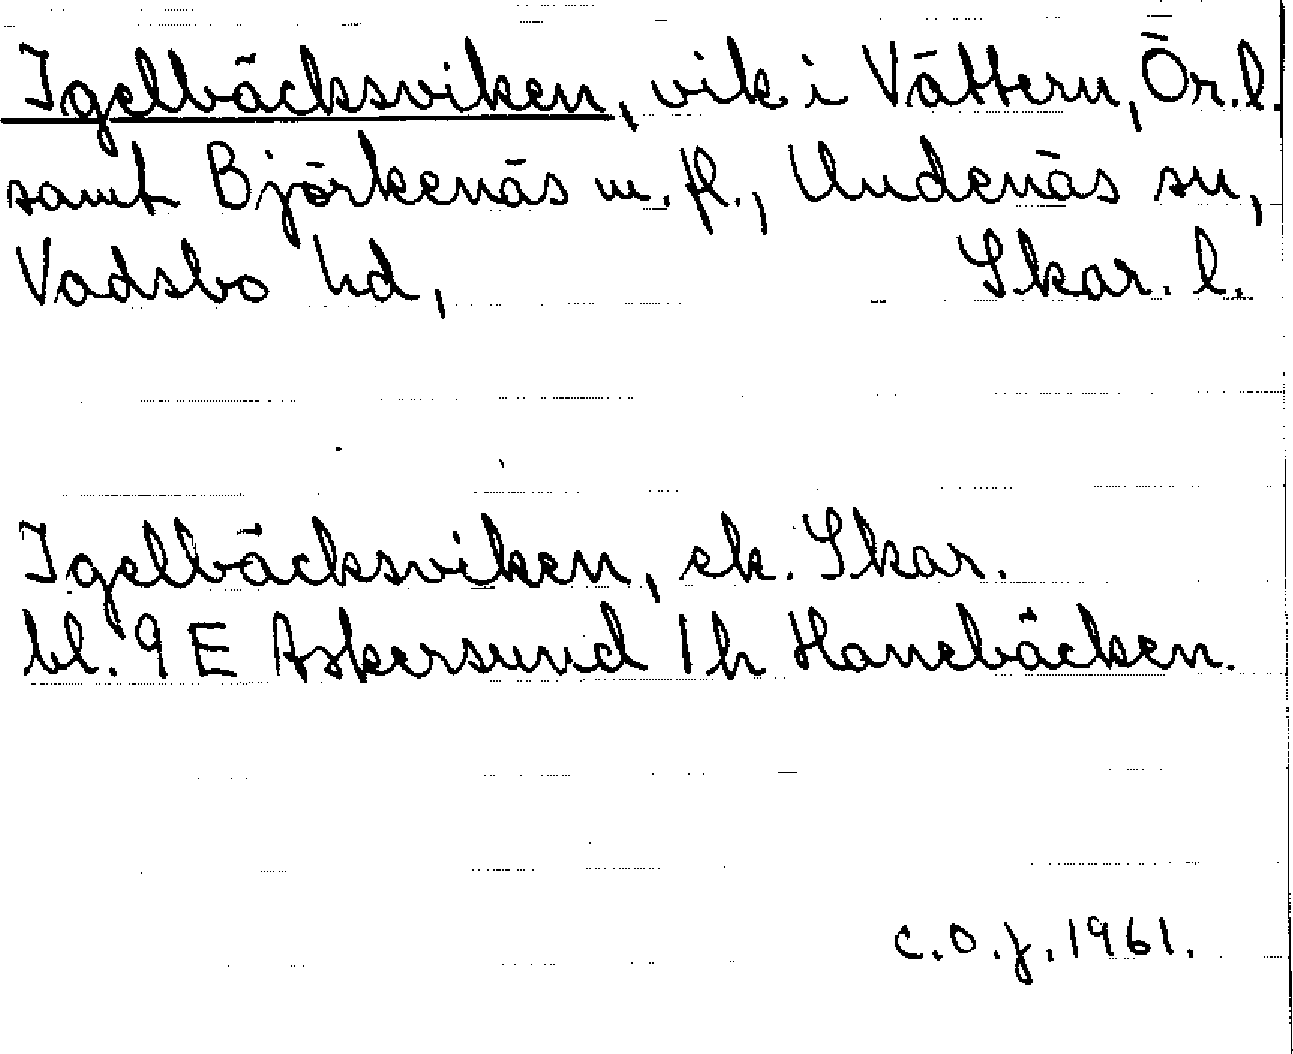 Igelbäcksviken, vik i Vättern, Ör. l.
samt Björkenäs m. fl., Undenäs sn,
Vadsbo hd, Skar. l.
Igelbäcksviken, ek. Skar.
bl. 9 E Askersund 1 h Hanebäcken.
C.O.J. 1961.